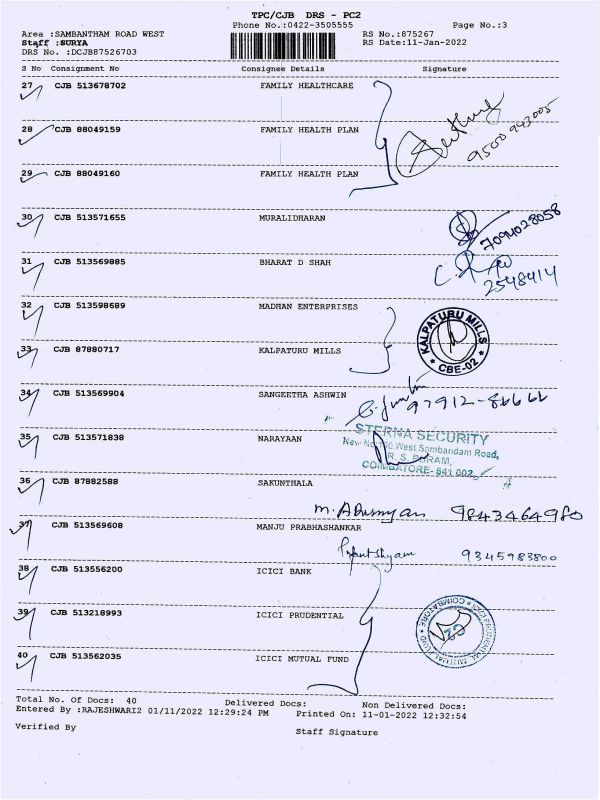 TPC/CJB DRS - PC2
Phone No.:0422-3505555
Page No.:3
Area :SAMBANTHAM ROAD WEST
RS No.:875267
Staff :SURYA
RS Date:11-Jan-2022
DRS No. :DCJB87526703
S No Consignment No Consignee Details Signature
27 CJB 513678702 FAMILY HEALTHCARE
28 CJB 88049159 FAMILY HEALTH PLAN
9500943005
29 CJB 88049160 FAMILY HEALTH PLAN
30 CJB 513571655 MURALIDHARAN
7094028058
31 CJB 513569885 BHARAT D SHAH
2548414
32 CJB 513598689 MADHAN ENTERPRISES
KALPATURU MILLS
CBE-02
33 CJB 87880717 KALPATURU MILLS
34 CJB 513569904 SANGEETHA ASHWIN
97912-86666
STERNA SECURITY
35 CJB 513571838 NARAYAAN
West Sambandam Road,
R. S. PURAM,
COIMBATORE- 641 002
36 CJB 87882588 SAKUNTHALA
9843464980
37 CJB 513569608 MANJU PRABHASHANKAR
9345983800
38 CJB 513556200 ICICI BANK
39 CJB 513218993 ICICI PRUDENTIAL
ICICI PRUDENTIAL MUTUAL FUND COIMBATORE
40 CJB 513562035 ICICI MUTUAL FUND
Total No. Of Docs: 40 Delivered Docs: Non Delivered Docs:
Entered By :RAJESHWARI2 01/11/2022 12:29:24 PM Printed On: 11-01-2022 12:32:54
Verified By
Staff Signature